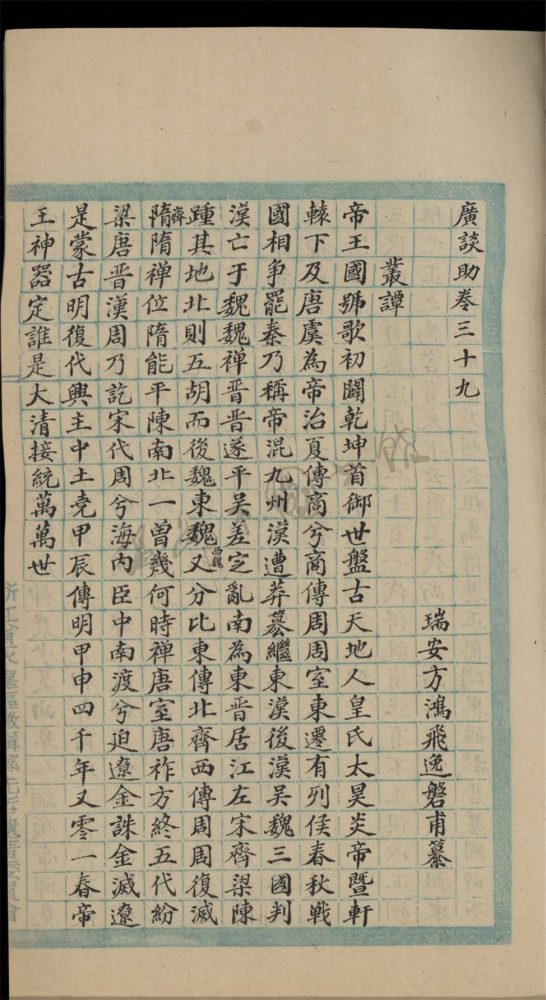 廣談助卷三十九
瑞安方鴻飛逸磐甫纂
叢譚
帝王國號歌初闢乾坤首御世盤古天地人皇氏太昊炎帝暨軒
轅下及唐虞為帝治夏傳商兮商傳周周室東遷有列侯春秋戰
國相爭罷秦乃稱帝混九州漢遭莽篡繼東漢後漢吳魏三國判
漢亡于魏魏禪晉晉遂平吳差定亂南為東晉居江左宋齊梁陳
踵其地北則五胡而後魏東魏西魏又分比東傳北齊西傳周周復滅
齊隋隋禪位隋能平陳南北一曾幾何時禪唐室唐祚方終五代紛
梁唐晉漢周乃訖宋代周兮海內臣中南渡兮迫遼金誅金滅遼
是蒙古明復代興主中土堯甲辰傳明甲申四千年又零一春帝
王神器定誰是大清接統萬萬世